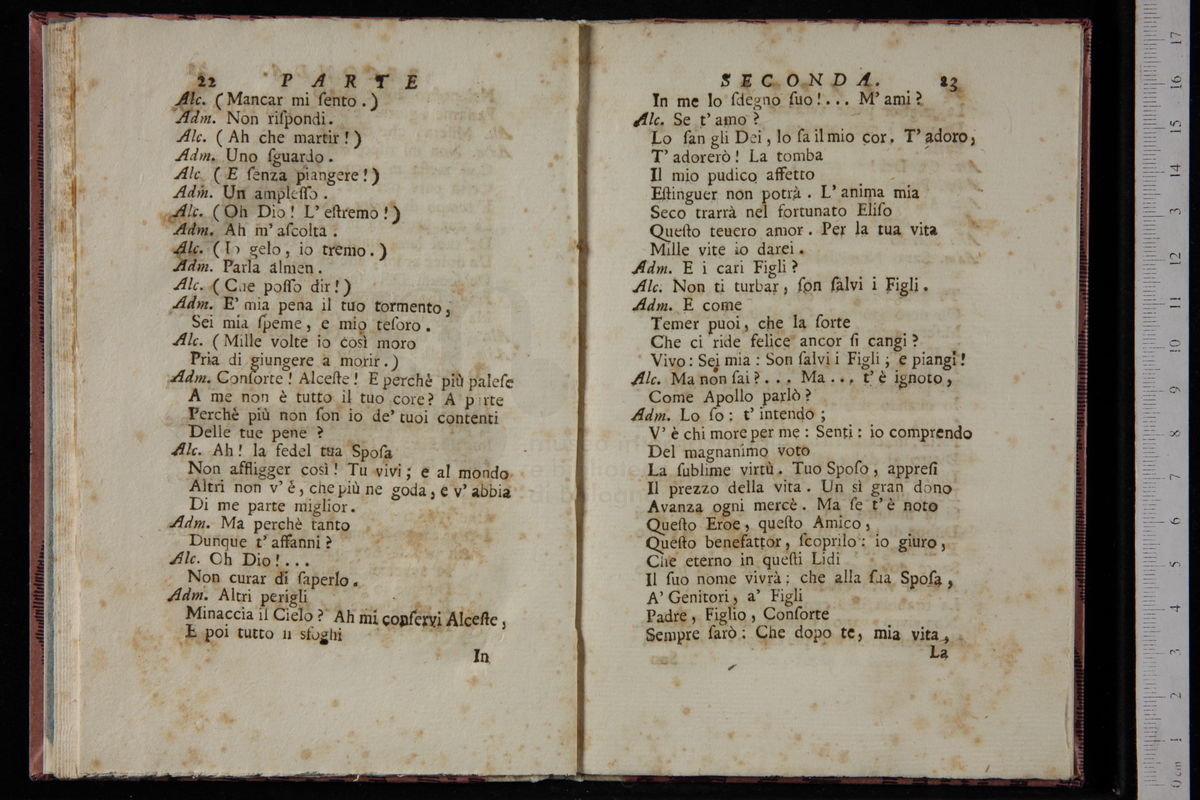 22 PARTE
Alc. (Mancar mi ſento.)
Adm. Non riſpondi.
Alc. (Ah che martir!)
Adm. Uno ſguardo.
Alc (E ſenza piangere!)
Adm. Un ampleſſo.
Alc. (Oh Dio! L'eſtremo!)
Adm. Ah m'aſcolta.
Alc. (Io gelo, io tremo.)
Adm. Parla almen.
Alc. (Che poſſo dir!)
Adm. E' mia pena il tuo tormento,
Sei mia ſpeme, e mio teſoro.
Alc. (Mille volte io così moro
Pria di giungere a morir.)
Adm. Conſorte! Alceſte! E perchè più paleſe
A me non è tutto il tuo core? A parte
Perchè più non ſon io de' tuoi contenti
Delle tue pene?
Alc. Ah! la fedel tua Spoſa
Non affligger così! Tu vivi; e al mondo
Altri non v'è, che più ne goda, e v'abbia
Di me parte miglior.
Adm. Ma perchè tanto
Dunque t'affanni?
Alc. Oh Dio!...
Non curar di ſaperlo.
Adm. Altri perigli
Minaccia il Cielo? Ah mi conſervi Alceſte,
E poi tutto il sfoghi
In
SECONDA. 23
In me lo ſdegno ſuo!... M'ami?
Alc. Se t'amo?
Lo ſan gli Dei, lo ſa il mio cor. T'adoro,
T'adorerò! La tomba
Il mio pudico affetto
Eſtinguer non potrà. L'anima mia
Seco trarrà nel fortunato Eliſo
Queſto teuero amor. Per la tua vita
Mille vite io darei.
Adm. E i cari Figli?
Alc. Non ti turbar, ſon ſalvi i Figli.
Adm. E come
Temer puoi, che la ſorte
Che ci ride felice ancor ſi cangi?
Vivo: Sei mia: Son ſalvi i Figli; e piangi!
Alc. Ma non ſai?... Ma... t'è ignoto,
Come Apollo parlò?
Adm. Lo ſo: t'intendo;
V'è chi more per me: Senti: io comprendo
Del magnanimo voto
La ſublime virtù. Tuo Spoſo, appreſi
Il prezzo della vita. Un sì gran dono
Avanza ogni mercè. Ma ſe t'è noto
Queſto Eroe, queſto Amico,
Queſto benefattor, ſcoprilo: io giuro,
Che eterno in queſti Lidi
Il ſuo nome vivrà; che alla ſua Spoſa,
A' Genitori, a' Figli
Padre, Figlio, Conſorte
Sempre ſarò: Che dopo te, mia vita,
La